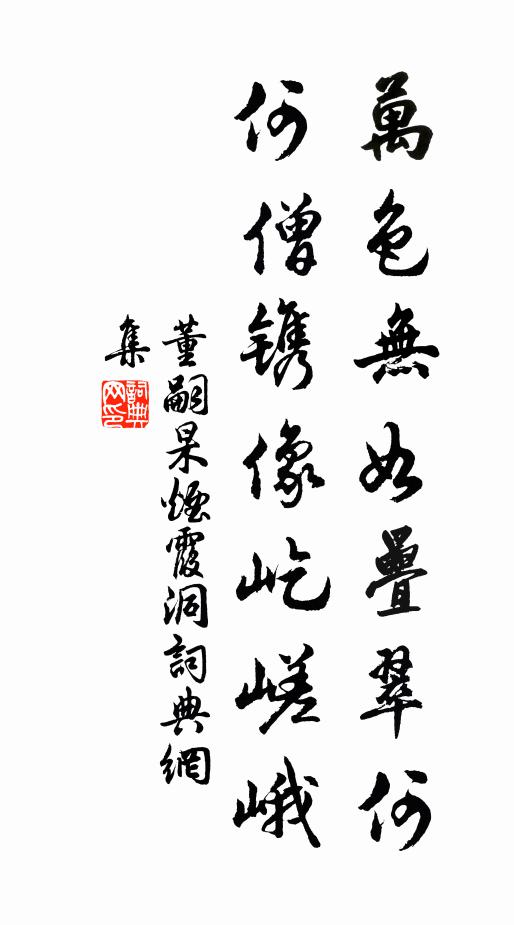 萬色無如疊翠何
何僧鐫像屹嵯峨
董嗣杲煙霞洞詞典網
集
詞典
网印